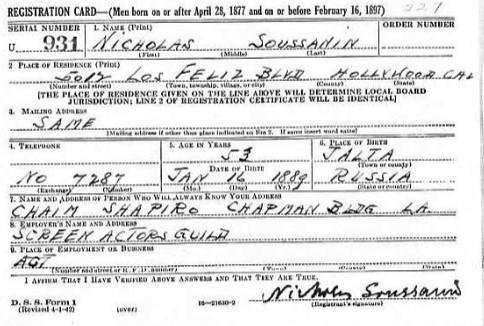 REGISTRATION CARD—(Men born on or after April 28, 1877 and on or before February 16, 1897)
SERIAL NUMBER 1. NAME (Print) ORDER NUMBER
U 931 NICHOLAS SOUSSANIN
(First) (Middle) (Last)
2. PLACE OF RESIDENCE (Print)
LOS FELIZ BLVD HOLLYWOOD CAL
(Number and street) (Town, township, village, or city) (County) (State)
[THE PLACE OF RESIDENCE GIVEN ON THE LINE ABOVE WILL DETERMINE LOCAL BOARD
JURISDICTION; LINE 2 OF REGISTRATION CERTIFICATE WILL BE IDENTICAL]
3. MAILING ADDRESS
SAME
[Mailing address if other than place indicated on line 2. If same insert word same]
4. TELEPHONE 5. AGE IN YEARS 6. PLACE OF BIRTH
53 JALTA
DATE OF BIRTH (Town or county)
NO 7287 JAN 16 1889 RUSSIA
(Exchange) (Number) (Mo.) (Day) (Yr.) (State or country)
7. NAME AND ADDRESS OF PERSON WHO WILL ALWAYS KNOW YOUR ADDRESS
CHAIM SHAPIRO CHAPMAN BLDG LA.
8. EMPLOYER'S NAME AND ADDRESS
SCREEN ACTORS GUILD
9. PLACE OF EMPLOYMENT OR BUSINESS
(Number and street or R. F. D. number) (Town) (County) (State)
I AFFIRM THAT I HAVE VERIFIED ABOVE ANSWERS AND THAT THEY ARE TRUE.
Nicholas Soussanin
D. S. S. Form 1 (Revised 4-1-42) (over) 16—21630-2 (Registrant's signature)